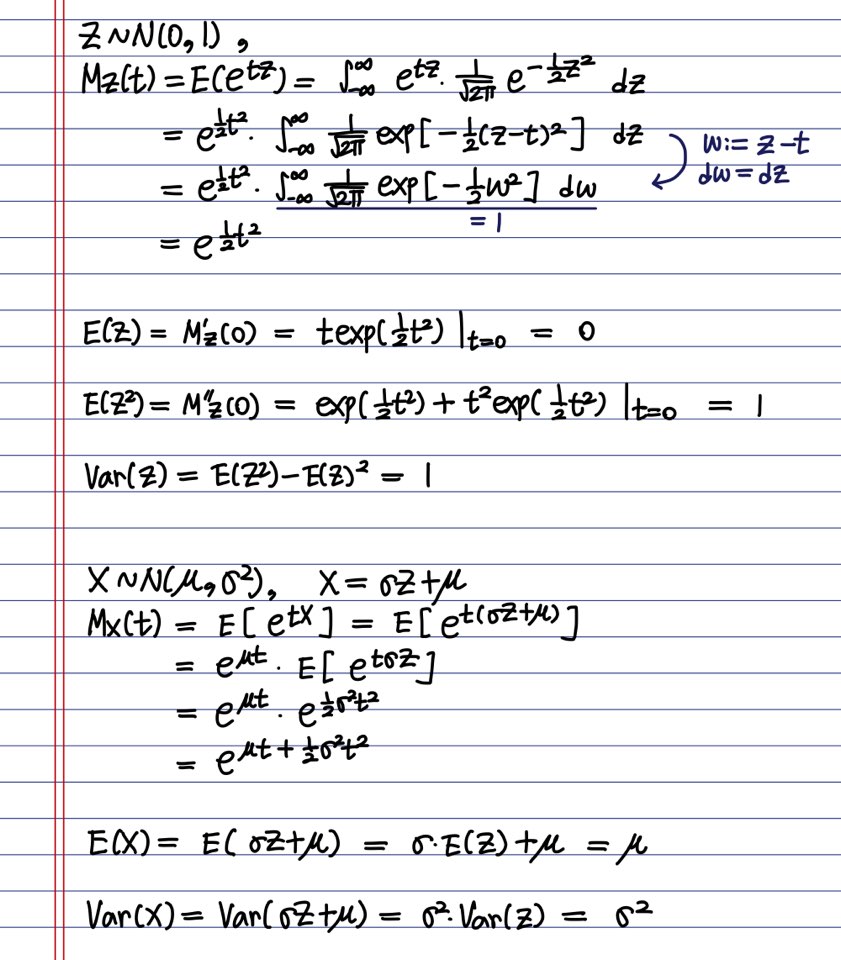 Z ~ N(0, 1) ,
Mz(t) = E(e^{tz}) = ∫_{-∞}^{∞} e^{tz} · \frac{1}{\sqrt{2π}} e^{-\frac{1}{2}z^2} dz
= e^{\frac{1}{2}t^2} · ∫_{-∞}^{∞} \frac{1}{\sqrt{2π}} exp[-\frac{1}{2}(z-t)^2] dz
w := z - t
dw = dz
= e^{\frac{1}{2}t^2} · ∫_{-∞}^{∞} \frac{1}{\sqrt{2π}} exp[-\frac{1}{2}w^2] dw
= 1
= e^{\frac{1}{2}t^2}
E(Z) = M'z(0) = t exp(\frac{1}{2}t^2) |_{t=0} = 0
E(Z^2) = M''z(0) = exp(\frac{1}{2}t^2) + t^2 exp(\frac{1}{2}t^2) |_{t=0} = 1
Var(Z) = E(Z^2) - E(Z)^2 = 1
X ~ N(μ, σ^2), X = σZ + μ
Mx(t) = E[e^{tX}] = E[e^{t(σZ+μ)}]
= e^{μt} · E[e^{tσZ}]
= e^{μt} · e^{\frac{1}{2}σ^2t^2}
= e^{μt + \frac{1}{2}σ^2t^2}
E(X) = E(σZ+μ) = σ·E(Z) + μ = μ
Var(X) = Var(σZ+μ) = σ^2·Var(Z) = σ^2